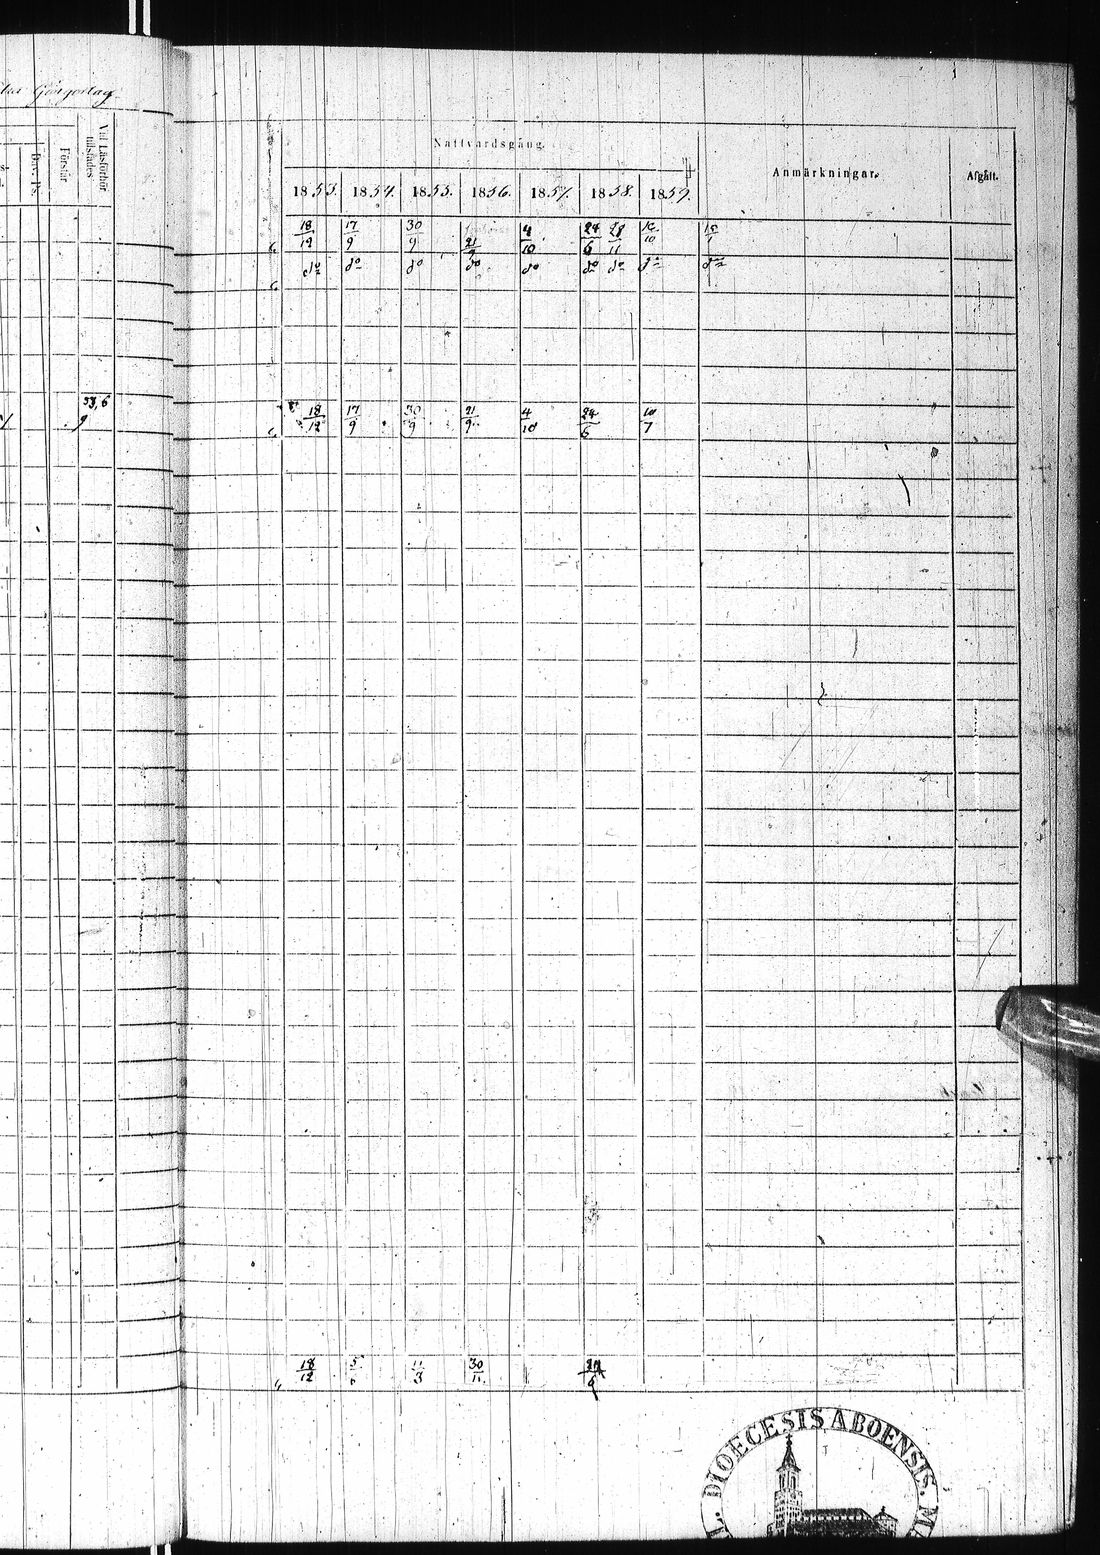 Giärgostag
Vid Läsförhör tillstädes
Förstår
Nattvardsgång.
Anmärkningar.
Afgått.
1853. 1854. 1855. 1856. 1857. 1858. 1859.
18/12 17/9 30/9 21/9 4/10 24/6 28/11
do do do do do do do do do
53, 6
9
18/12 17/9 30/9 21/9 4/10 24/6 10/7
18/12 11/3 30/11
DIOECESIS ABOENSIS.